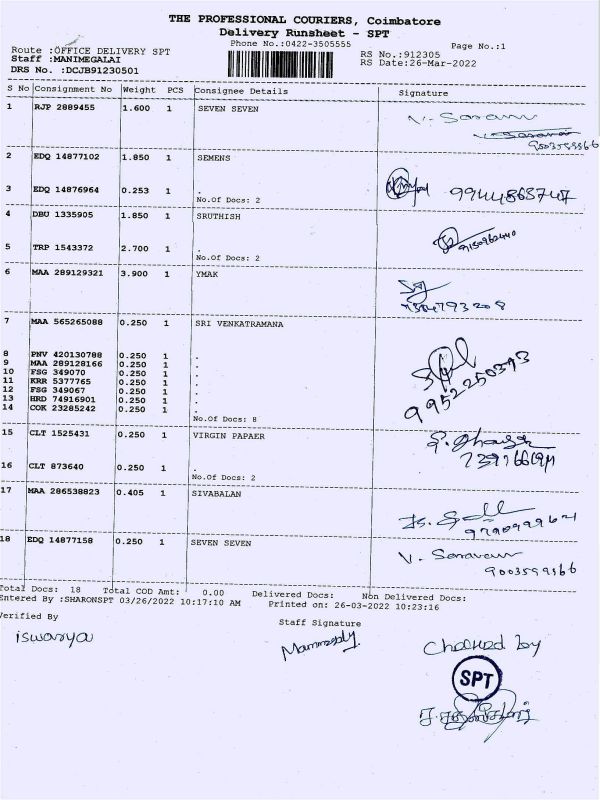 THE PROFESSIONAL COURIERS, Coimbatore
Delivery Runsheet - SPT
Phone No.:0422-3505555
Page No.:1
Route :OFFICE DELIVERY SPT
RS No.:912305
Staff :MANIMEGALAI
RS Date:26-Mar-2022
DRS No. :DCJB91230501
S No Consignment No Weight PCS Consignee Details Signature
1 RJP 2889455 1.600 1 SEVEN SEVEN
V. Saravanan
9003599966
2 EDQ 14877102 1.850 1 SEMENS
3 EDQ 14876964 0.253 1 .
No.Of Docs: 2
4 DBU 1335905 1.850 1 SRUTHISH
5 TRP 1543372 2.700 1 .
No.Of Docs: 2
6 MAA 289129321 3.900 1 YMAK
7 MAA 565265088 0.250 1 SRI VENKATRAMANA
8 PNV 420130788 0.250 1 .
9 MAA 289128166 0.250 1 .
10 FSG 349070 0.250 1 .
11 KRR 5377765 0.250 1 .
12 FSG 349067 0.250 1 .
13 HRD 74916901 0.250 1 .
14 COK 23285242 0.250 1 .
9952250393
No.Of Docs: 8
15 CLT 1525431 0.250 1 VIRGIN PAPAER
16 CLT 873640 0.250 1 .
No.Of Docs: 2
17 MAA 286538823 0.405 1 SIVABALAN
18 EDQ 14877158 0.250 1 SEVEN SEVEN
V. Saravanan
9003599966
Total Docs: 18 Total COD Amt: 0.00 Delivered Docs: Non Delivered Docs:
Entered By :SHARONSPT 03/26/2022 10:17:10 AM Printed on: 26-03-2022 10:23:16
Verified By
Staff Signature
iswarya
Checked by
SPT